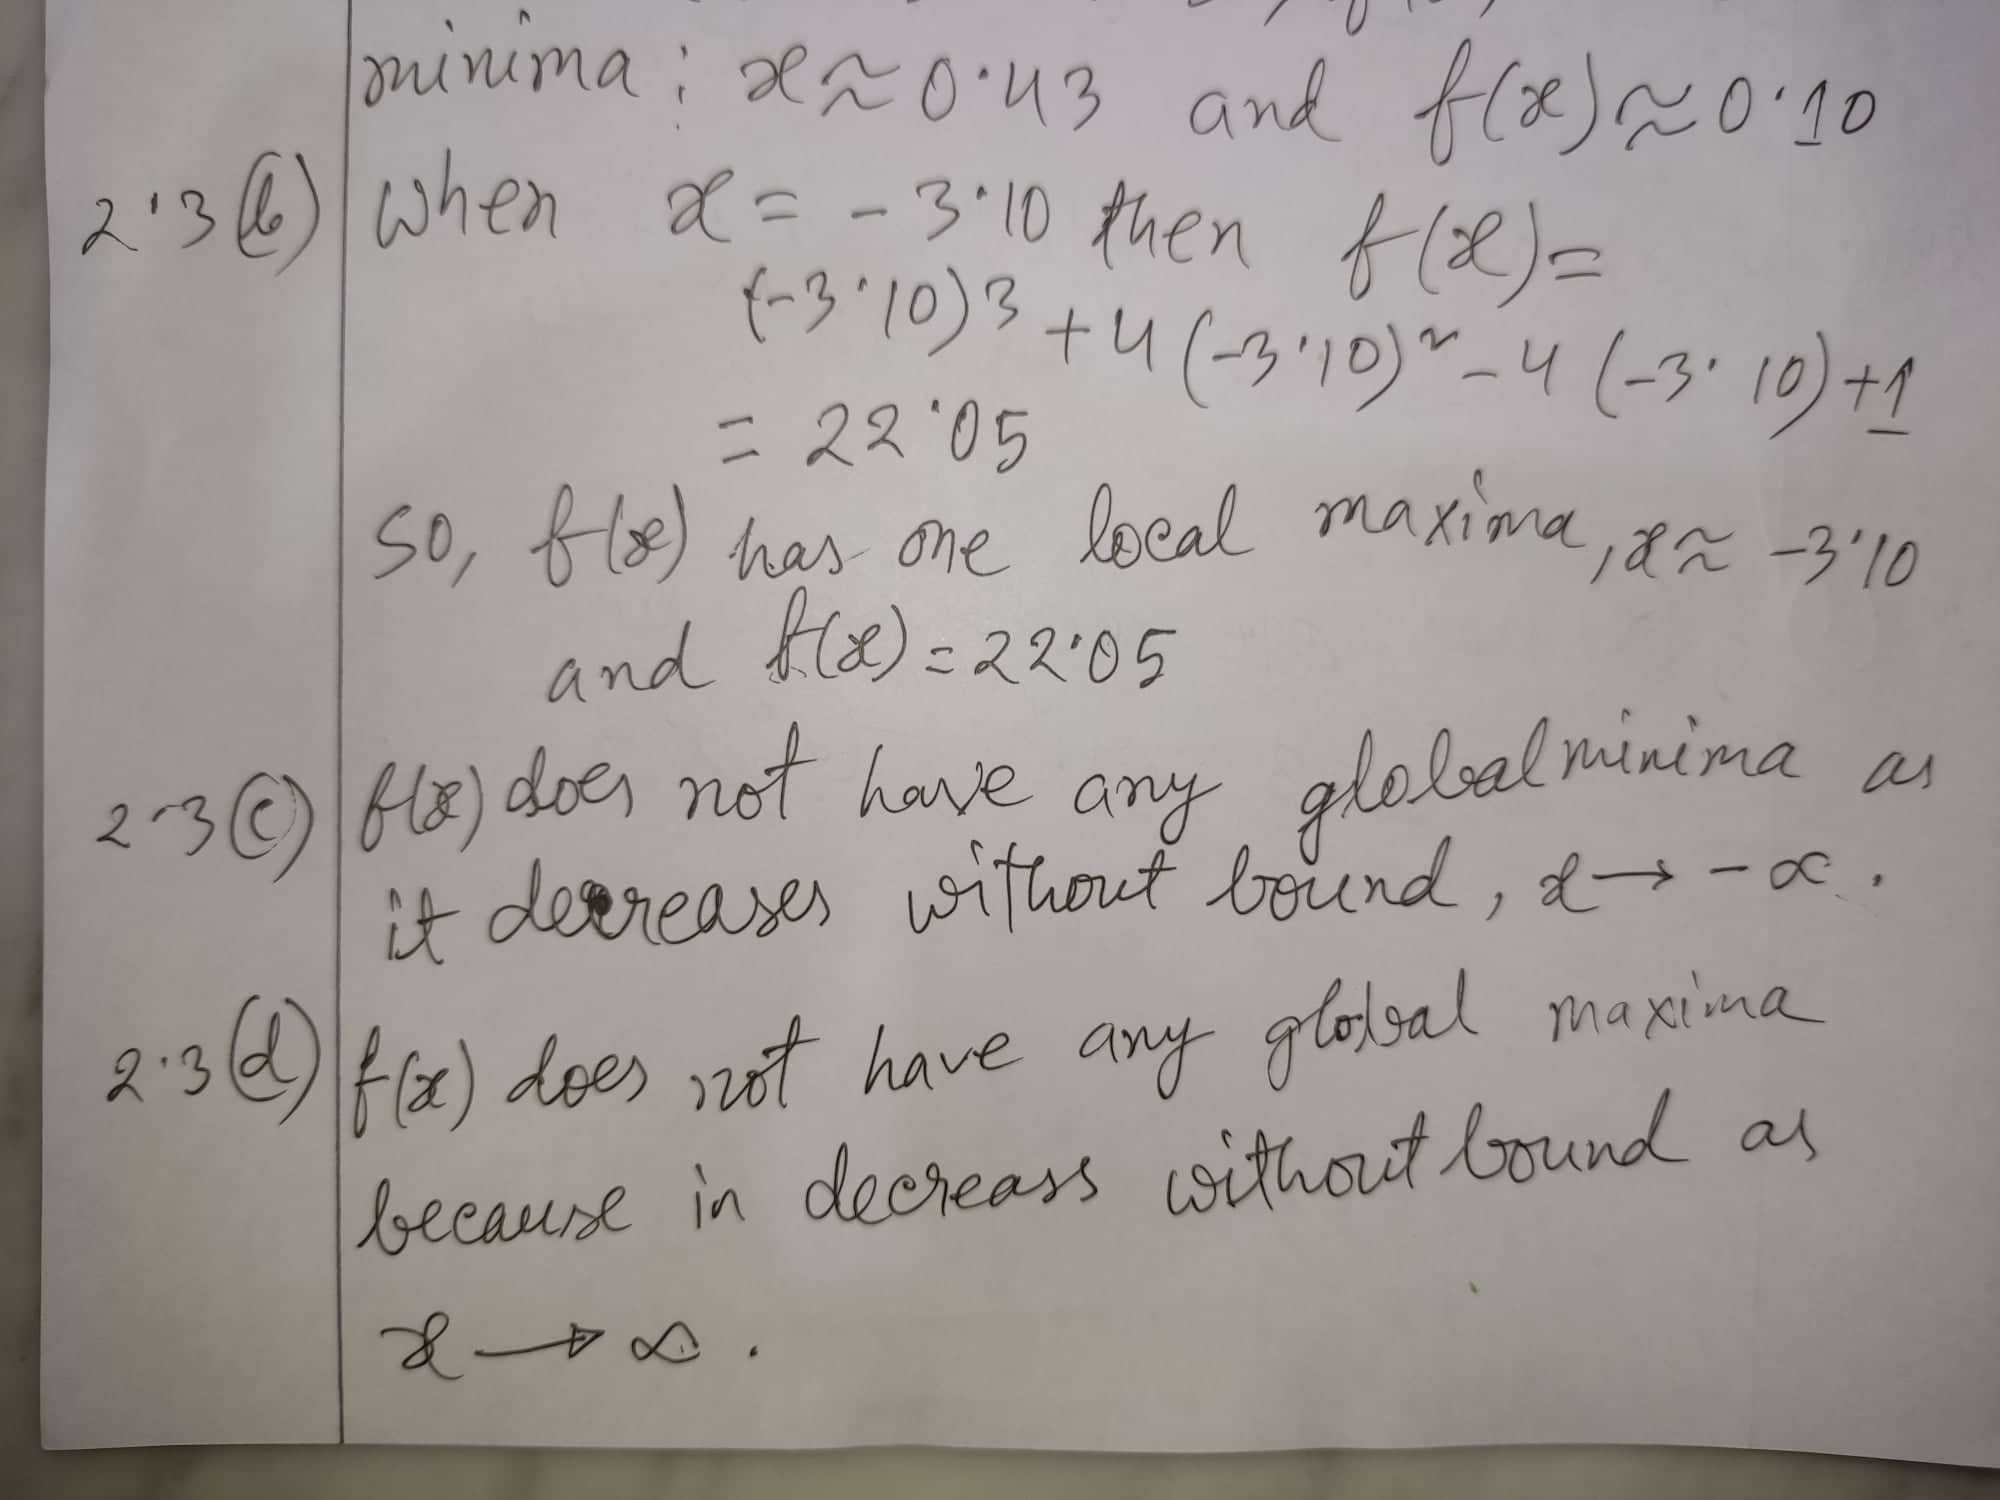 minima: x ≈ 0.43 and f(x) ≈ 0.10
2.3(b) when x = -3.10 then f(x) =
(-3.10)3 + 4(-3.10)² - 4(-3.10) + 1
= 22.05
so, f(x) has one local maxima, x ≈ -3.10
and f(x) = 22.05
2.3(c) f(x) does not have any global minima as
it decreases without bound, x → -∞.
2.3(d) f(x) does not have any global maxima
because in decreass without bound as
x → ∞.